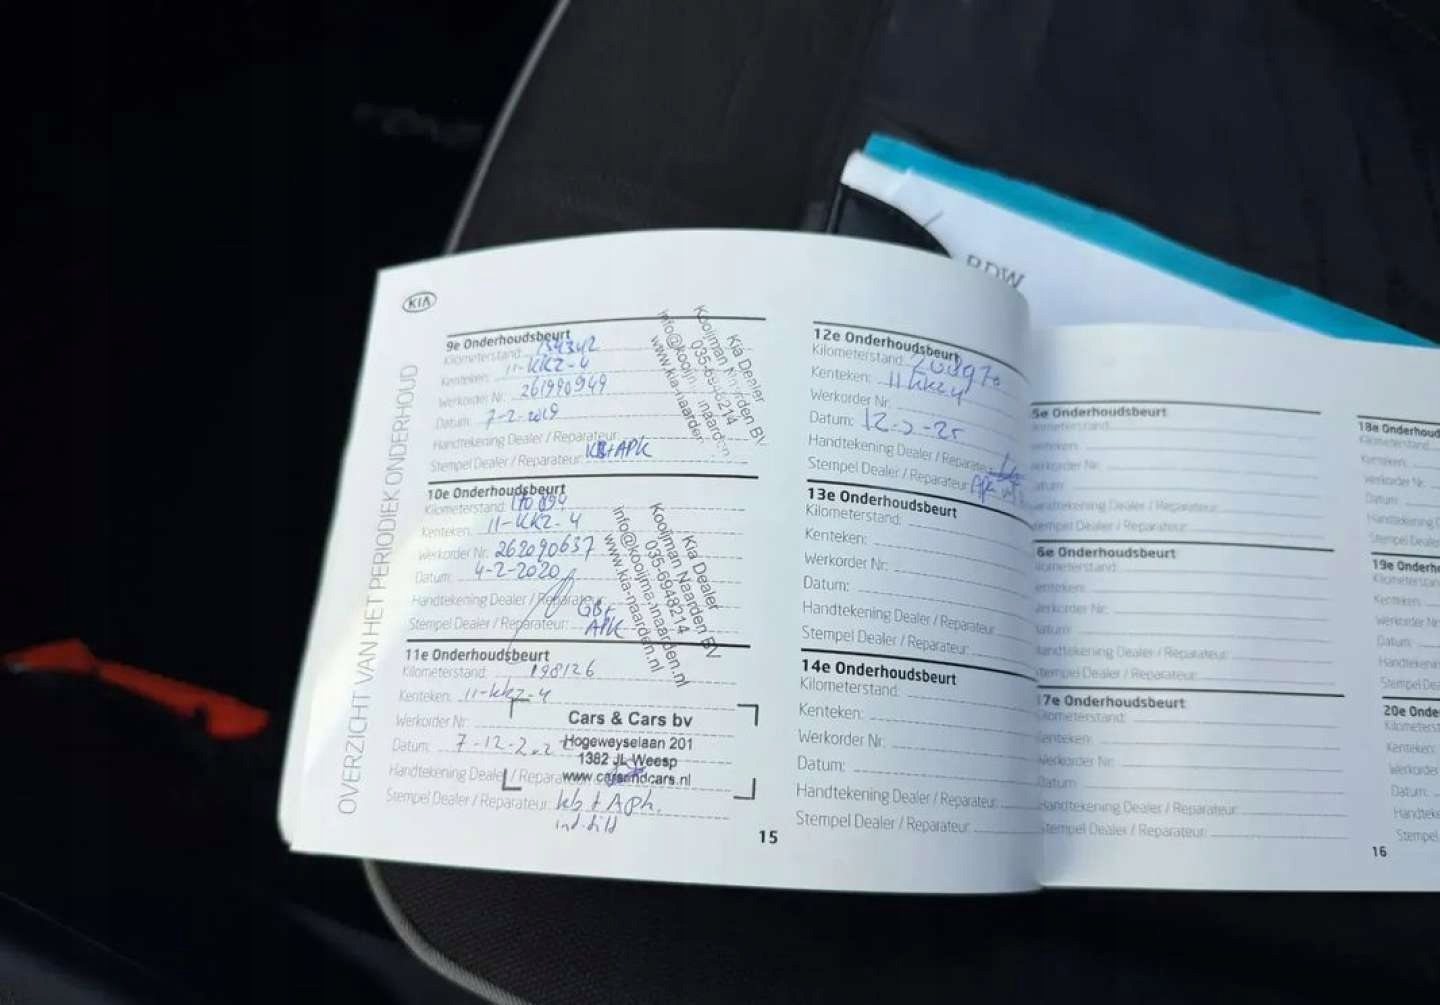 KIA
OVERZICHT VAN HET PERIODIEK ONDERHOUD
9e Onderhoudsbeurt
Kilometerstand: 154342
Kenteken: 11-KKZ-4
Werkorder Nr.: 261990949
Datum: 7-2-2019
Handtekening Dealer / Reparateur:
Stempel Dealer / Reparateur: KB+APK
Kia Dealer
Kooijman Naarden BV
035-6948214
info@kooijmannaarden
www.kia-naarden
10e Onderhoudsbeurt
Kilometerstand: 170894
Kenteken: 11-KKZ-4
Werkorder Nr. 262090637
Datum: 4-2-2020
Handtekening Dealer / Reparateur
Stempel Dealer / Reparateur: GB+
APK
Kia Dealer
Kooijman Naarden BV
035-6948214
info@kooijmannaarden.nl
www.kia-naarden.nl
11e Onderhoudsbeurt
Kilometerstand: 198126
Kenteken: 11-KKZ-4
Werkorder Nr.
Datum: 7-12-202
Handtekening Dealer / Reparateur
Stempel Dealer / Reparateur: kb + Apk.
Cars & Cars bv
Hogeweyselaan 201
1382 JL Weesp
www.carsandcars.nl
15
12e Onderhoudsbeurt
Kilometerstand: 208970
Kenteken: 11KKZ4
Werkorder Nr.
Datum: 12-2-25
Handtekening Dealer / Reparateur
Stempel Dealer / Reparateur: Apk
13e Onderhoudsbeurt
Kilometerstand:
Kenteken:
Werkorder Nr.:
Datum:
Handtekening Dealer / Reparateur
Stempel Dealer / Reparateur:
14e Onderhoudsbeurt
Kilometerstand:
Kenteken:
Werkorder Nr.
Datum:
Handtekening Dealer / Reparateur:
Stempel Dealer / Reparateur
RDW
5e Onderhoudsbeurt
ilometerstand:
enteken:
erkorder Nr:
atum:
andtekening Dealer / Reparateur:
tempel Dealer / Reparateur:
6e Onderhoudsbeurt
ilometerstand:
enteken:
erkorder Nr:
atum:
andtekening Dealer / Reparateur:
tempel Dealer / Reparateur:
17e Onderhoudsbeurt
ilometerstand:
Kenteken:
Werkorder Nr.:
Datum:
Handtekening Dealer / Reparateur:
Stempel Dealer / Reparateur:
18e Onderhoud
Kilometerstand
Kenteken:
Werkorder Nr.
Datum:
Handtekening
Stempel Dealer
19e Onderh
Kilometerstan
Kenteken:
Werkorder
Datum:
Handtekeni
Stempel
20e Onde
Kilometerst
Kenteken:
Werkorder
Datum:
Handteke
Stempel
16